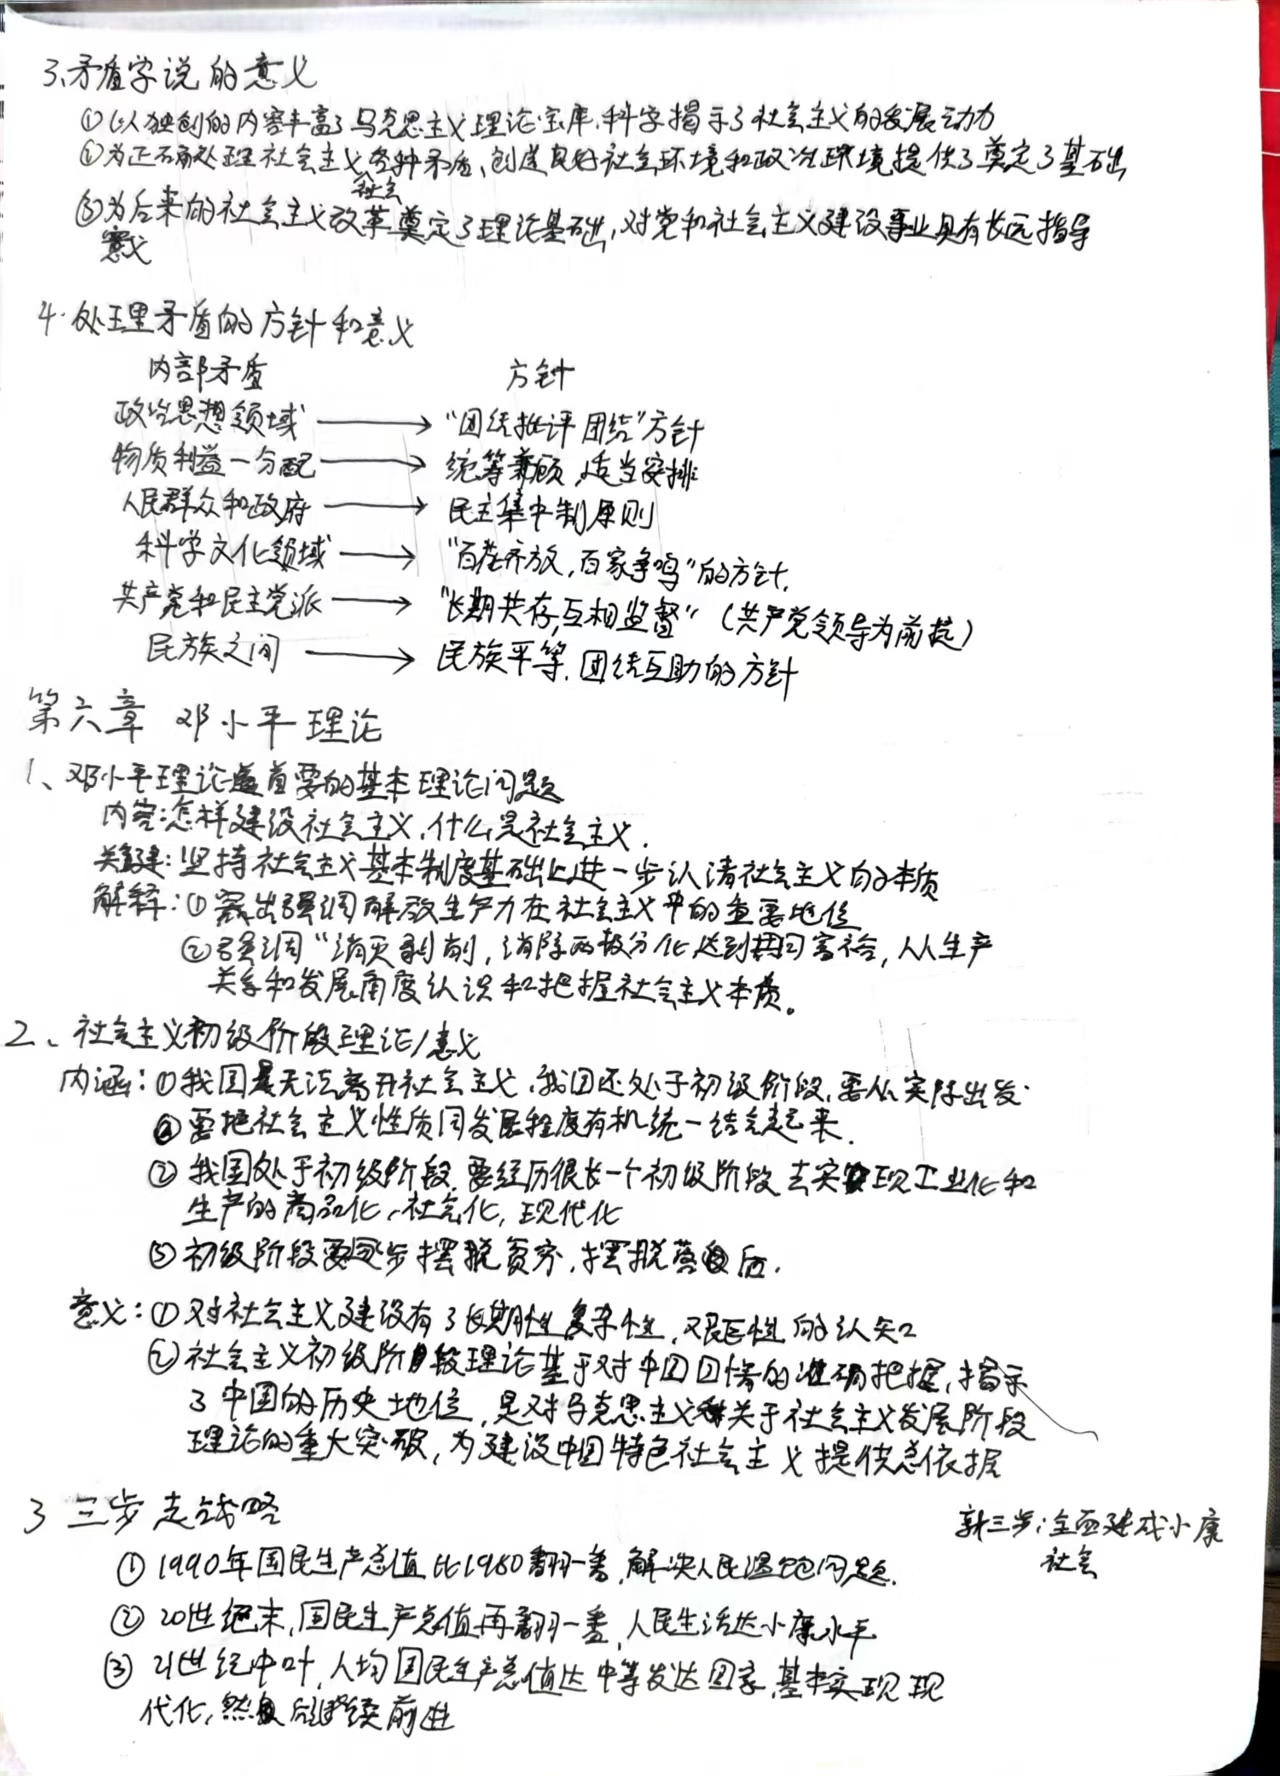 3、矛盾学说的意义
①以独创的内容丰富了马克思主义理论宝库,科学揭示了社会主义的发展动力
②为正确处理社会主义社会各种矛盾,创造良好社会环境和政治环境提供了奠定了基础
③为后来的社会主义改革奠定了理论基础,对党和社会主义建设事业具有长远指导
意义
4.处理矛盾的方针和意义
内部矛盾 方针
政治思想领域 → “团结批评团结”方针
物质利益一分配 → 统筹兼顾,适当安排
人民群众和政府 → 民主集中制原则
科学文化领域 → “百花齐放,百家争鸣”的方针.
共产党和民主党派 → “长期共存,互相监督”(共产党领导为前提)
民族之间 → 民族平等.团结互助的方针
第六章 邓小平理论
1、邓小平理论首要的基本理论问题
内容:怎样建设社会主义,什么是社会主义.
关键:坚持社会主义基本制度基础上进一步认清社会主义的本质
解释:①突出强调解放生产力在社会主义中的重要地位
②强调“消灭剥削,消除两极分化达到共同富裕,从生产
关系和发展角度认识和把握社会主义本质。
2、社会主义初级阶段理论/意义
内涵:①我国是无法离开社会主义,我国还处于初级阶段,要从实际出发.
②要把社会主义性质同发展程度有机统一结合起来.
②我国处于初级阶段.要经历很长一个初级阶段去实现工业化和
生产的商品化,社会化,现代化
③初级阶段要逐步摆脱贫穷,摆脱落后.
意义:①对社会主义建设有了长期性复杂性,艰巨性的认知
②社会主义初级阶段理论基于对中国国情的准确把握,揭示
了中国的历史地位,是对马克思主义关于社会主义发展阶段
理论的重大突破,为建设中国特色社会主义提供总依据
3 三步走战略
新三步:全面建成小康
社会
①1990年国民生产总值比1980翻一番,解决人民温饱问题.
②20世纪末,国民生产总值再翻一番,人民生活达小康水平
③21世纪中叶,人均国民生产总值达中等发达国家,基本实现现
代化,然后继续前进